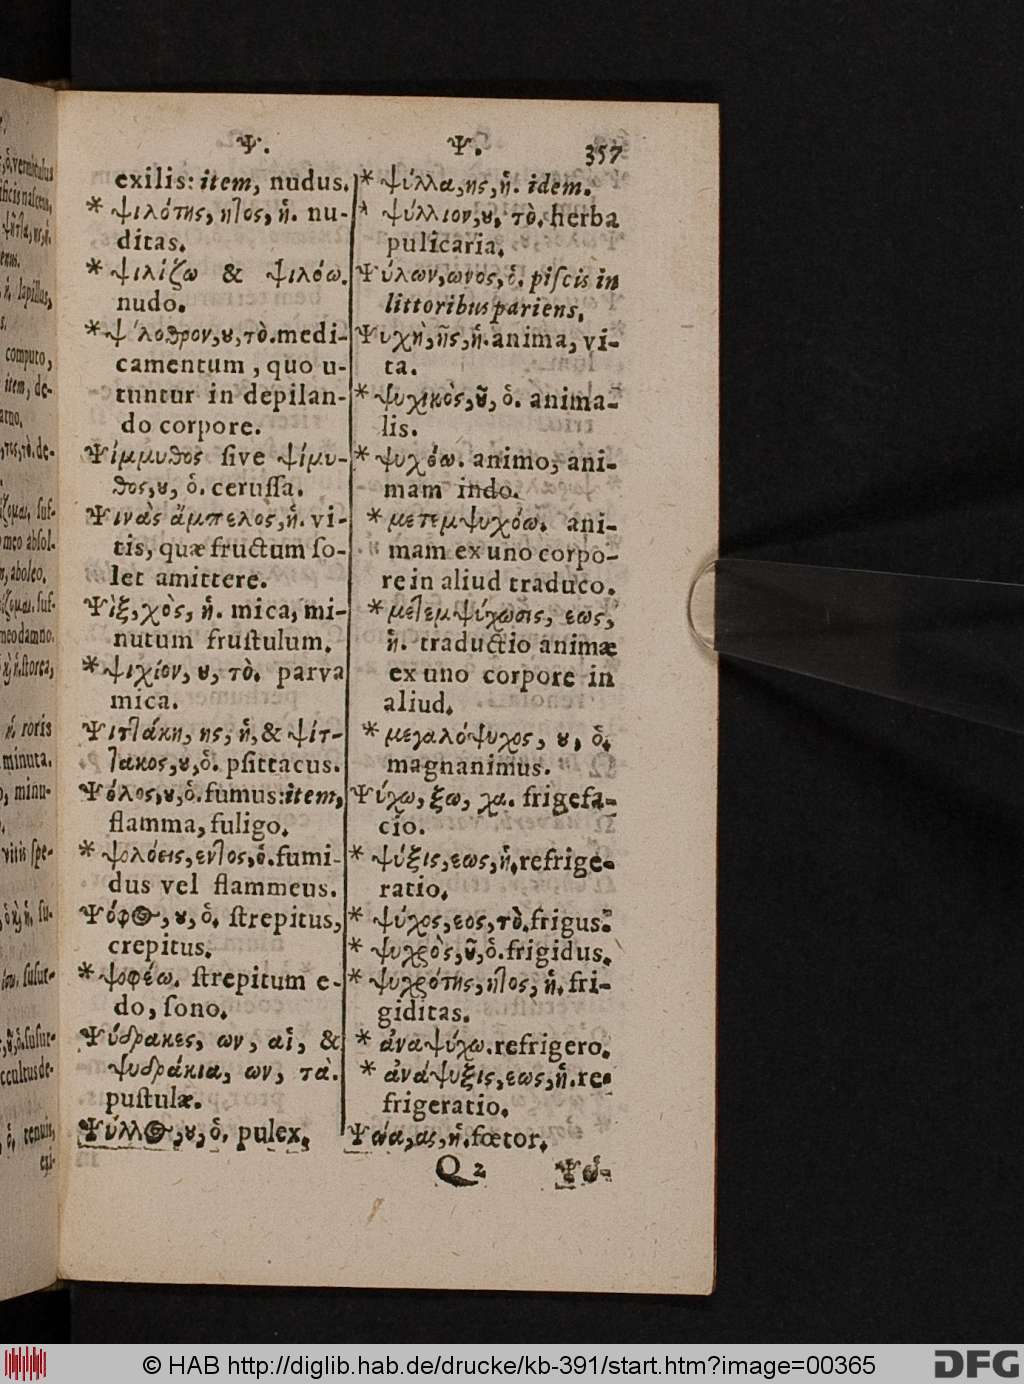 Ψ.
Ψ. 357
exilis: item, nudus.
* ψιλότης, ητος, ἡ. nu-
ditas.
* ψιλίζω & ψιλόω.
nudo.
* ψ΄λοθρον, ου, τὸ. medi-
camentum, quo u-
tuntur in depilan-
do corpore.
Ψίμμυθος ſive ψίμυ-
θος, ου, ὁ. ceruſſa.
Ψινὰς ἄμπελος, ἡ. vi-
tis, quæ fructum ſo-
let amittere.
Ψὶξ, χὸς, ἡ. mica, mi-
nutum fruſtulum.
* ψιχίον, ου, τὸ. parva
mica.
Ψιττάκη, ης, ἡ, & ψίτ-
τακος, ου, ὁ. pſittacus.
Ψόλος, ου, ὁ. fumus: item,
flamma, fuligo.
* ψολόεις, εντος, ὁ. fumi-
dus vel flammeus.
Ψόφος, ου, ὁ. ſtrepitus,
crepitus.
* ψοφέω. ſtrepitum e-
do, ſono.
Ψύδρακες, ων, αἱ, &
ψυδράκια, ων, τὰ.
puſtulæ.
Ψύλλος, ου, ὁ. pulex.
* ψύλλα, ης, ἡ. idem.
* ψύλλιον, ου, τὸ. herba
pulicaria.
Ψύλων, ωνος, ὁ. piſcis in
littoribus pariens.
Ψυχὴ, ῆς, ἡ. anima, vi-
ta.
* ψυχικὸς, οῦ, ὁ. anima-
lis.
* ψυχόω. animo, ani-
mam indo.
* μετεμψυχόω. ani-
mam ex uno corpo-
re in aliud traduco.
* μετεμψύχωσις, εως,
ἡ. traductio animæ
ex uno corpore in
aliud.
* μεγαλόψυχος, ου, ὁ.
magnanimus.
Ψύχω, ξω, χα. frigefa-
cio.
* ψύξις, εως, ἡ. refrige-
ratio.
* ψύχος, εος, τὸ. frigus:
* ψυχρὸς, οῦ, ὁ. frigidus.
* ψυχρότης, ητος, ἡ. fri-
giditas.
* ἀναψύχω. refrigero.
* ἀνάψυξις, εως, ἡ. re-
frigeratio.
Ψώα, ας, ἡ. fœtor.
Q 2 Ψώ-
© HAB http://diglib.hab.de/drucke/kb-391/start.htm?image=00365
DFG